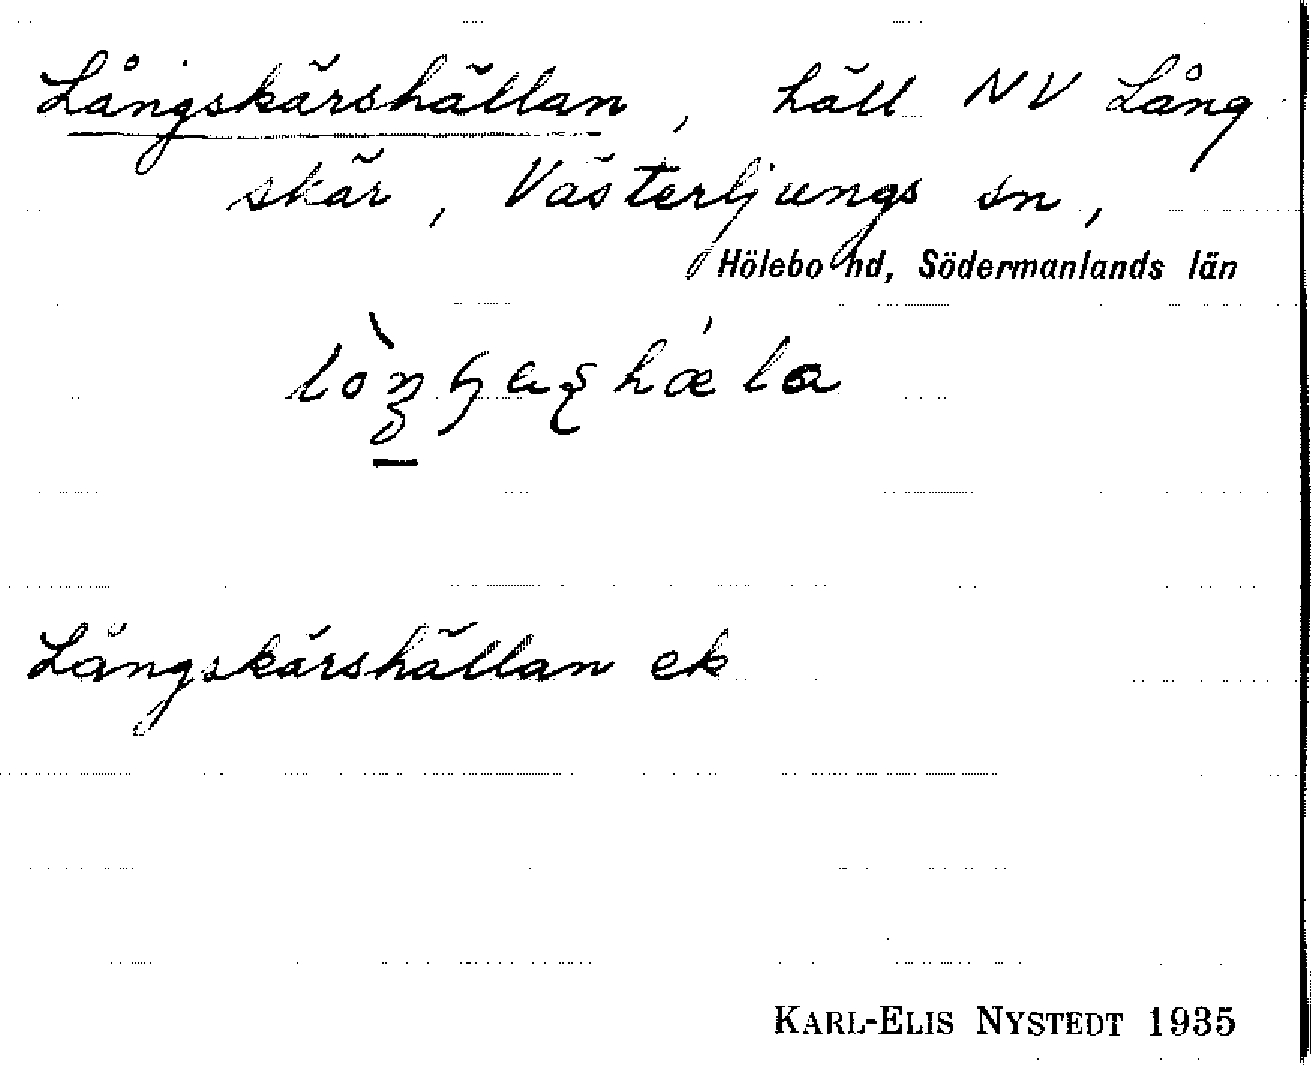 Långskärshällan, häll NV Lång
skär, Västerljungs sn,
Hölebo hd, Södermanlands län
Långskärshällan ek
KARL-ELIS NYSTEDT 1935